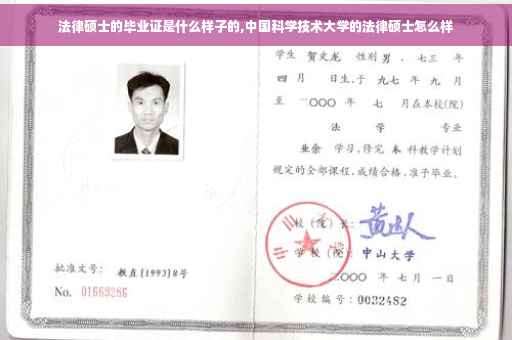 法律硕士的毕业证是什么样子的,中国科学技术大学的法律硕士怎么样
学生 贺文龙 性别 男 、七三 年
四 月 日生,于 九七 年 九 月
至 二〇〇〇 年 七 月在本校(院)
法 学 专业
业余 学习,修完 本 科教学计划
规定的全部课程,成绩合格,准予毕业。
校(院)长:
学 校(院): 中山大学
二〇〇〇 年 七 月 一 日
学校编号: 0032482
批准文号: 教直[1993]8号
No. 01669286